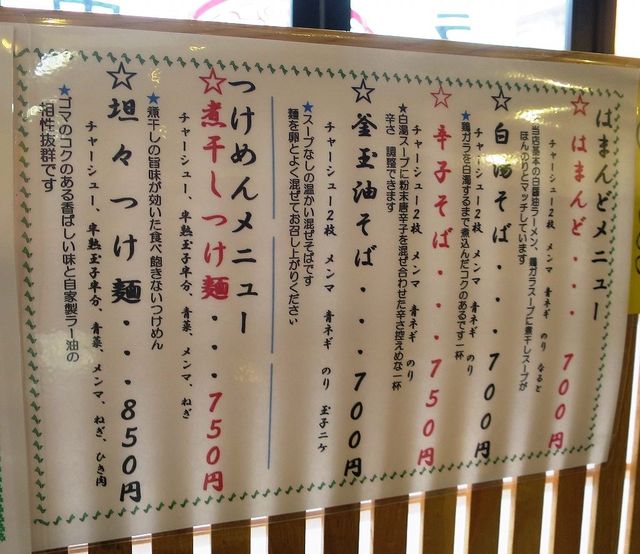 はまんどメニュー
☆はまんど・・・700円
チャーシュー2枚 メンマ 青ネギ のり なると
当店基本の白醤油ラーメン、鶏ガラスープに煮干しスープが
ほんのりとマッチしています
☆白湯そば・・・700円
チャーシュー2枚 メンマ 青ネギ のり
★鶏ガラを白濁するまで煮込んだコクのある一杯です
☆辛子そば・・・750円
チャーシュー2枚 メンマ 青ネギ のり
★白湯スープに粉末唐辛子を混ぜ合わせた辛さ控えめな一杯
辛さ 調整できます
☆釜玉油そば・・・700円
チャーシュー2枚 メンマ 青ネギ のり 玉子二ケ
★スープなしの温かい混ぜそばです
麺を卵とよく混ぜてお召し上がりください
つけめんメニュー
☆煮干しつけ麺・・・750円
チャーシュー、半熟玉子半分、青菜、メンマ、ねぎ
★煮干しの旨味が効いた食べ飽きないつけめん
☆坦々つけ麺・・・850円
チャーシュー、半熟玉子半分、青菜、メンマ、ねぎ、ひき肉
★ゴマのコクのある香ばしい味と自家製ラー油の
相性抜群です